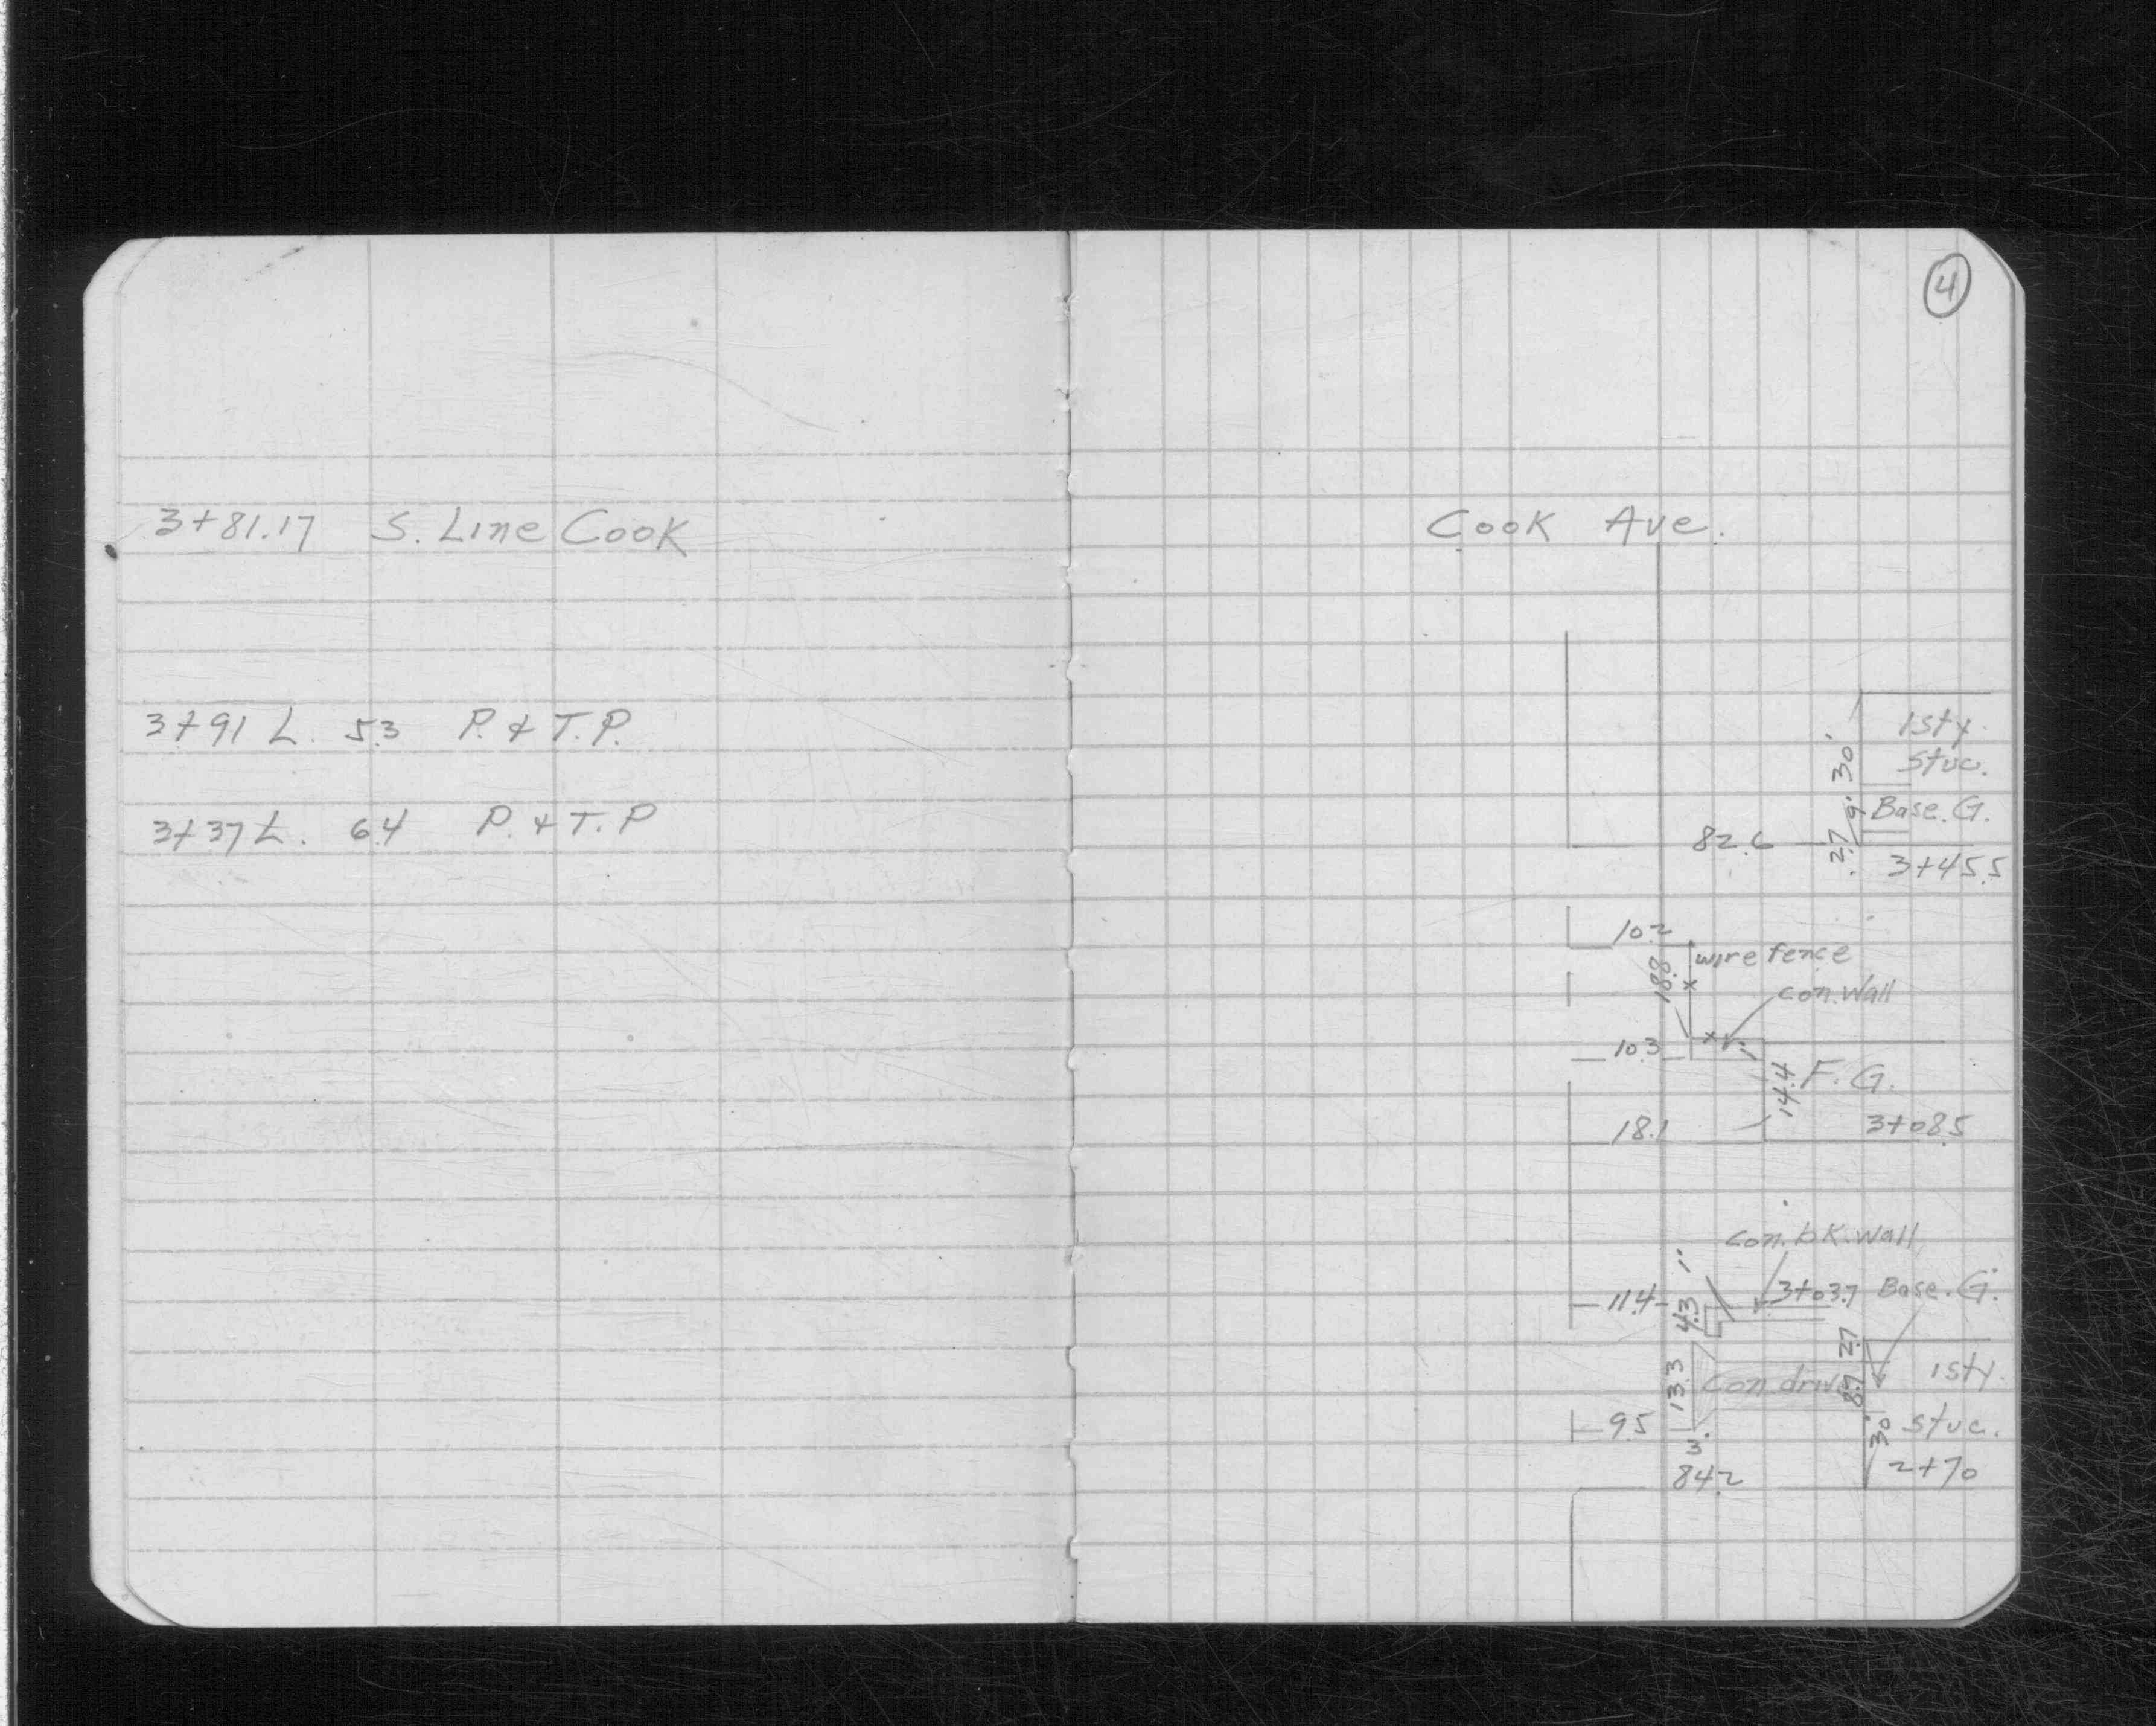 3+81.17 S. Line Cook
3+91 L. 5.3 P. & T. P.
3+37 L. 6.4 P. & T. P
4
Cook Ave.
1sty.
Stuc.
30'
9'
Base. G.
82.6
2.7
3+45.5
10.2
18.8
wire fence
x
con. wall
10.3
x
14.4
F. G.
18.1
3+08.5
con. bk. wall
1'
11.4
4.3
3+03.7 Base. G.
2.7
13.3
con. drive
8.7
1sty.
9.5
30'
stuc.
3.
84.2
2+70